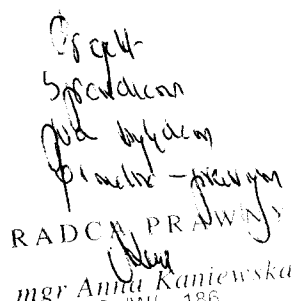 Projekt
Sprawdzam
pod względem
formalno-prawnym
RADCA PRAWNY
mgr Anna Kaniewska
186